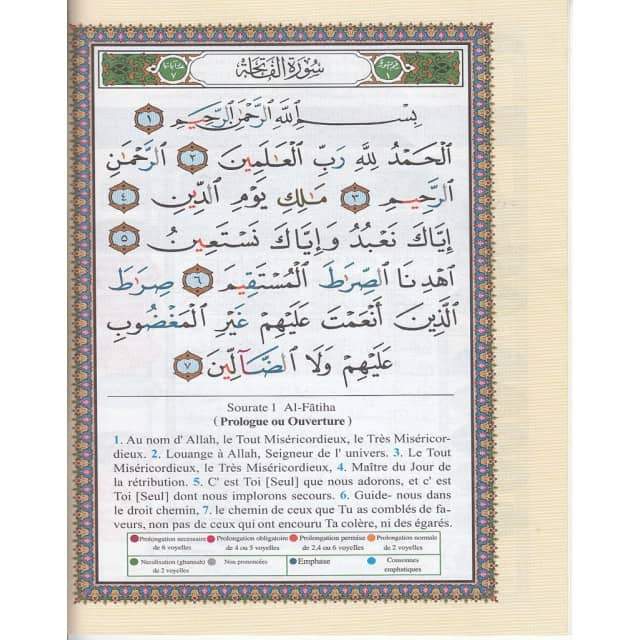 سورة الفاتحة
بِسْمِ ٱللَّهِ ٱلرَّحْمَٰنِ ٱلرَّحِيمِ ١
ٱلْحَمْدُ لِلَّهِ رَبِّ ٱلْعَٰلَمِينَ ٢ ٱلرَّحْمَٰنِ
ٱلرَّحِيمِ ٣ مَٰلِكِ يَوْمِ ٱلدِّينِ ٤
إِيَّاكَ نَعْبُدُ وَإِيَّاكَ نَسْتَعِينُ ٥
ٱهْدِنَا ٱلصِّرَٰطَ ٱلْمُسْتَقِيمَ ٦ صِرَٰطَ
ٱلَّذِينَ أَنْعَمْتَ عَلَيْهِمْ غَيْرِ ٱلْمَغْضُوبِ
عَلَيْهِمْ وَلَا ٱلضَّآلِّينَ ٧
Sourate 1 Al-Fātiha
( Prologue ou Ouverture )
1. Au nom d' Allah, le Tout Miséricordieux, le Très Miséricor-
dieux. 2. Louange à Allah, Seigneur de l' univers. 3. Le Tout
Miséricordieux, le Très Miséricordieux, 4. Maître du Jour de
la rétribution. 5. C' est Toi [Seul] que nous adorons, et c' est
Toi [Seul] dont nous implorons secours. 6. Guide- nous dans
le droit chemin, 7. le chemin de ceux que Tu as comblés de fa-
veurs, non pas de ceux qui ont encouru Ta colère, ni des égarés.
Prolongation necessaire Prolongation obligatoire Prolongation permise Prolongation normale
de 6 voyelles de 4 ou 5 voyelles de 2,4 ou 6 voyelles de 2 voyelles
Nasalisation (ghunnah) Non prononcées Emphase Consonnes
de 2 voyelles emphatiques